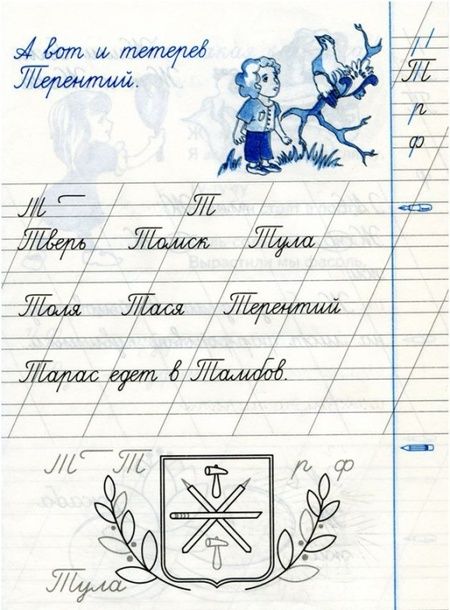 А вот и тетерев
Терентий.
Т
р
ф
Т Т
Тверь Томск Тула
Вырастили мы фасоль.
Толя Тася Терентий
Тарас едет в Тамбов.
Т Т р ф
Тула